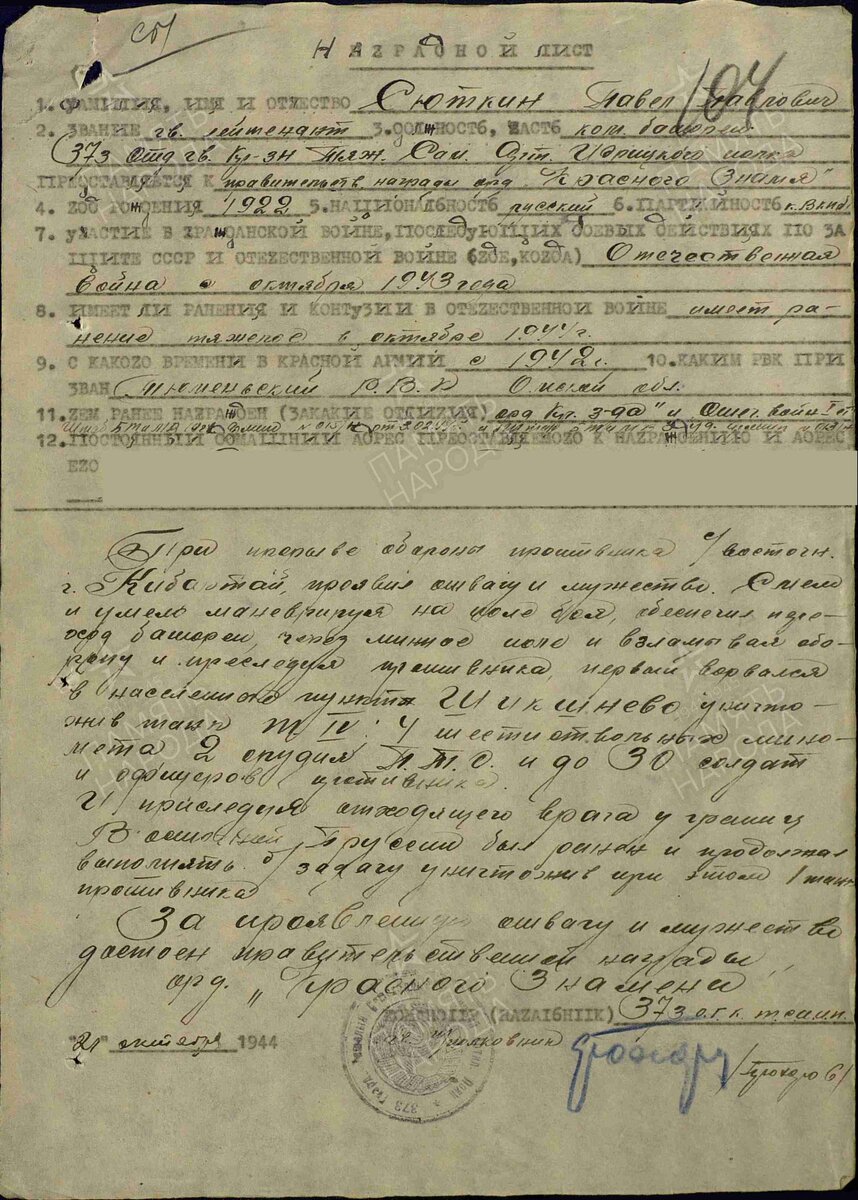 НАГРАДНОЙ ЛИСТ
104
1. ФАМИЛИЯ, ИМЯ И ОТЧЕСТВО Сюткин Павел Павлович
2. ЗВАНИЕ гв. лейтенант 3. ДОЛЖНОСТЬ, ЧАСТЬ ком. батареи
373 Отд. гв. Кр-зн Тяж. Сам. Арт. Идрицкого полка
ПРЕДСТАВЛЯЕТСЯ К правительств. награды орд. "Красного Знамя"
4. ГОД РОЖДЕНИЯ 1922 5. НАЦИОНАЛЬНОСТЬ русский 6. ПАРТИЙНОСТЬ к. ВКПб
7. УЧАСТИЕ В ГРАЖДАНСКОЙ ВОЙНЕ, ПОСЛЕДУЮЩИХ БОЕВЫХ ДЕЙСТВИЯХ ПО ЗА
ЩИТЕ СССР И ОТЕЧЕСТВЕННОЙ ВОЙНЕ (ГДЕ, КОГДА) Отечественная
война с октября 1943 года
8. ИМЕЕТ ЛИ РАНЕНИЯ И КОНТУЗИИ В ОТЕЧЕСТВЕННОЙ ВОЙНЕ имеет ра-
нение тяжелое в октябре 1944 г.
9. С КАКОГО ВРЕМЕНИ В КРАСНОЙ АРМИИ с 1942 г. 10. КАКИМ РВК ПРИ
ЗВАН Тюменьский Р.В.К Омской обл.
11. ЧЕМ РАНЕЕ НАГРАЖДЕН (ЗА КАКИЕ ОТЛИЧИЯ) орд. Кр. з-да" и Отеч. войн I ст
12. ПОСТОЯННЫЙ ДОМАШНИЙ АДРЕС ПРЕДСТАВЛЯЕМОГО К НАГРАЖДЕНИЮ И АДРЕС
ЕГО
При прорыве обороны противника с/восточн.
г. Кибартай, проявил отвагу и мужество. Смело
и умело маневрируя на поле боя, обеспечил пере-
ход батареи, через минное поле и взламывал обо-
рону и преследуя противника, первый ворвался
в населенного пункта Шикшнево, уничто-
жив танк Т IV: 4 шестиствольных мино-
мета 2 орудия П.Т.О. и до 30 солдат
и офицеров противника.
И приследуя отходящего врага у границ
Восточной Пруссии был ранен и продолжал
выполнять б/задачу уничтожив при этом 1 танк
противника
За проявленную отвагу и мужество
достоен правительственной награды
орд. „Красного Знамени
КОМАНДИР (НАЧАЛЬНИК) 373 о.г.к.т.сапп.
"21" октября 1944 гв. полковник